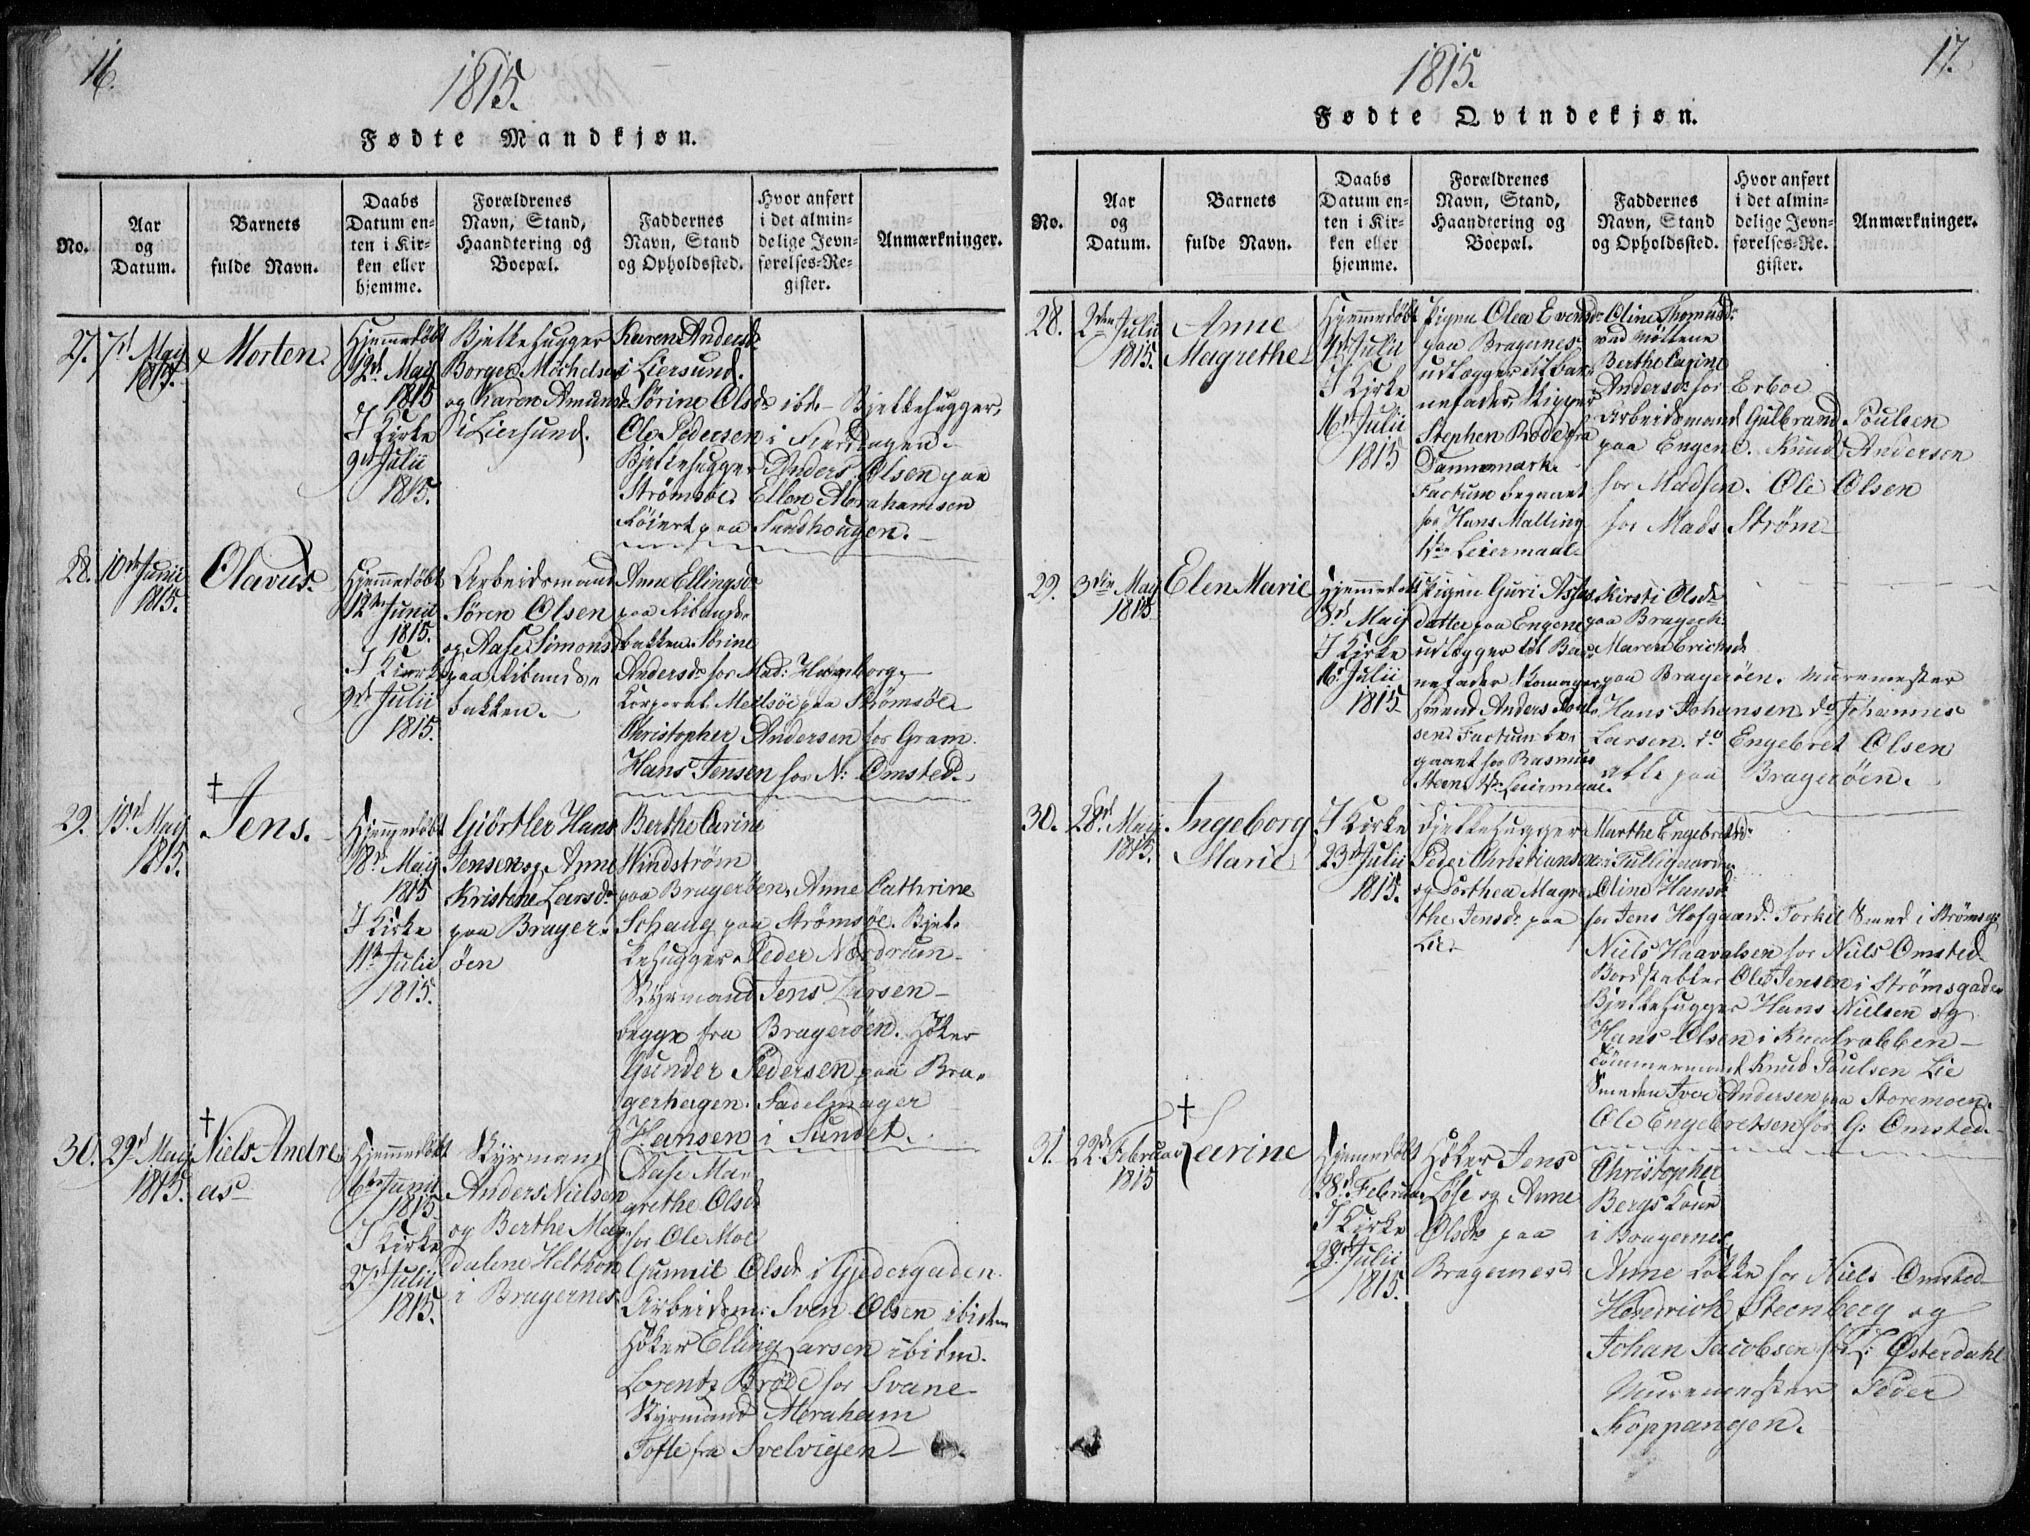 16.
1815.
Fødte Mandkjøn.
No.
Aar
og
Datum.
Barnets
fulde Navn.
Daabs
Datum en-
ten i Kir-
ken eller
hjemme.
Forældrenes
Navn, Stand,
Haandtering og
Boepæl.
Faddernes
Navn, Stand
og Opholdssted.
Hvor anført
i det almin-
delige Jevn-
førelses-Re-
gister.
Anmærkninger.
27.
7d May
1815.
Morten.
Hjemmedöbt
12d. Maij
1815
I Kirke
9d Julii
1815.
Bjelkehugger
Borger Michelsen
og Karen Amunds
i Liersund.
Karen Andersd
i Liersund.
Sörine Olsdr ibd. Bjelkehugger
Ole Pedersen i Fierdingen.
Bjelkehugger Anders Olsen paa
Strömsöe. Ellen Abrahamsen
paa Sundhougen.
28.
10de Junii
1815.
Olavus.
Hjemmedöbt
12te Junii
1815.
I Kirke
9d Julii
1815.
Arbeidsmand
Sören Olsen
og Aase Simonsd
paa
bakken.
Anne Ellingsdr
paa
bakken.
Andersdr for Mad:
Corporal Meilsöe paa Strömsöe
Christopher Andersen for Gram.
Hans Jensen for N: Omsted.
29.
15d Maij
1815.
† Jens.
Hjemmedöbt
18d Maij
1815
I Kirke
11te Julii
1815.
Giörtler Hans
Jensen og Anne
Kristine Larsdr
paa Brager-
öen
Berthe Carine
Windström
paa Brageröen, Anne Cathrine
Schaug paa Strömsöe. Bjel-
kehugger Peder Nordrum
Styrmand Jens Larsen
begge fra Brageröen. Höker
Gunder Pedersen paa Bra-
gerhergen. Sadelmager
Hansen i Sundet.
30.
29d Maij
1815.
† Niels Andre-
as
Hjemmedöbt
6te Junii
1815.
I Kirke
27d Julii
1815.
Styrmand
Anders Nielsen
og Berthe Mag-
dalene Heltbon
i Bragernes
Aase Ma-
grethe Olsd
for Ole Moe
Gunnil Olsdr i Gjedergaden.
Arbeidsm: Sven Olsen ibidem
Höker Elling Larsen ibidem.
Lorentz Bröde for Svane
Styrmand Abraham
Tofte fra Svelvigen
17.
1815.
Fødte Qvindekjøn.
No.
Aar
og
Datum.
Barnets
fulde Navn.
Daabs
Datum en-
ten i Kir-
ken eller
hjemme.
Forældrenes
Navn, Stand,
Haandtering og
Boepæl.
Faddernes
Navn, Stand
og Opholdssted.
Hvor anført
i det almin-
delige Jevn-
førelses-Re-
gister.
Anmærkninger.
28.
2den Julii
1815.
Anne
Magrethe
Hjemmedöbt
7d Julii
I Kirke
16d Julii
1815
Pigen Olea Evensdr
paa Bragernes
udlægger til bar-
nefader Skipper
Stephen Rode fra
Dannemark
Factum begaaet
for Hans Malling
1ste Leiermaal
Oline Thomasdr
ved Möllene
Berthe Carine
Andersdr for Erboe
Arbeidsmand Gulbrand Poulsen
paa Engene. Knud Andersen
for Madsen. Ole Olsen
for Mads Ström
29.
3die May
1815
Elen Marie
Hjemmedöbt
8d Maij
I Kirke
16d Julii
1815
Pigen Guri Aslas
datter paa Engene
udlægger til Bar-
nefader
svend Anders Poul-
sen. Factum be-
gaaet for Rasmus
Steen. 1ste Leiermaal.
Kirsti Olsdr
paa
Maren Erichsd
paa Brageröen. Muremester
Hans Johansen. do Johannes
Larsen. do Engebret Olsen
alle paa Brageröen.
30.
28d. Maij
1815.
Ingeborg
Marie
I Kirke
23d Julii
1815.
Bjelkehugger
Peder Christiansen
og Dorthea Magre-
the Jensdr paa
Lie
Marthe Engebretsdr
i Tolliggaarden
Oline Hansd:
for Jens Hofgaard. Torkil Smed i Strömsg:
Niels Haavalsen for Niels Omsted
Bordstabler Ole Jensen i Strömsgaden
Bjelkehugger Hans Nielsen og
Hans Olsen i
Tömmermand Knud Poulsen Lie
Smeden Iver Andersen paa Storemoen.
Ole Engebretsen for G: Omsted
31.
22d Februar
1815
† Larine
Hjemmedöbt
28d Februar
I Kirke
28d Julii
1815.
Höker Jens
Löse og Anne
Olsdr paa
Bragernes
Christopher
Bergs Kone
i Bragernes
Anne Lökke for Niels Omsted
Hendrich Steenberg og
Johan Jacobsen for L: Österdahl
Muremester Peder
Koppangen.